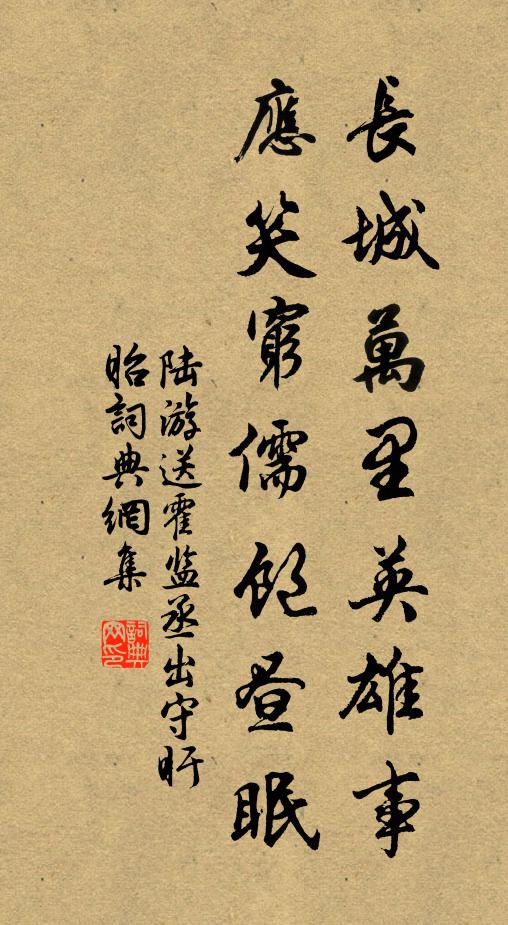 長城萬里英雄事
應笑窮儒飽晝眠
陆游送霍监丞出守盱
眙詞典網集
詞典
网印